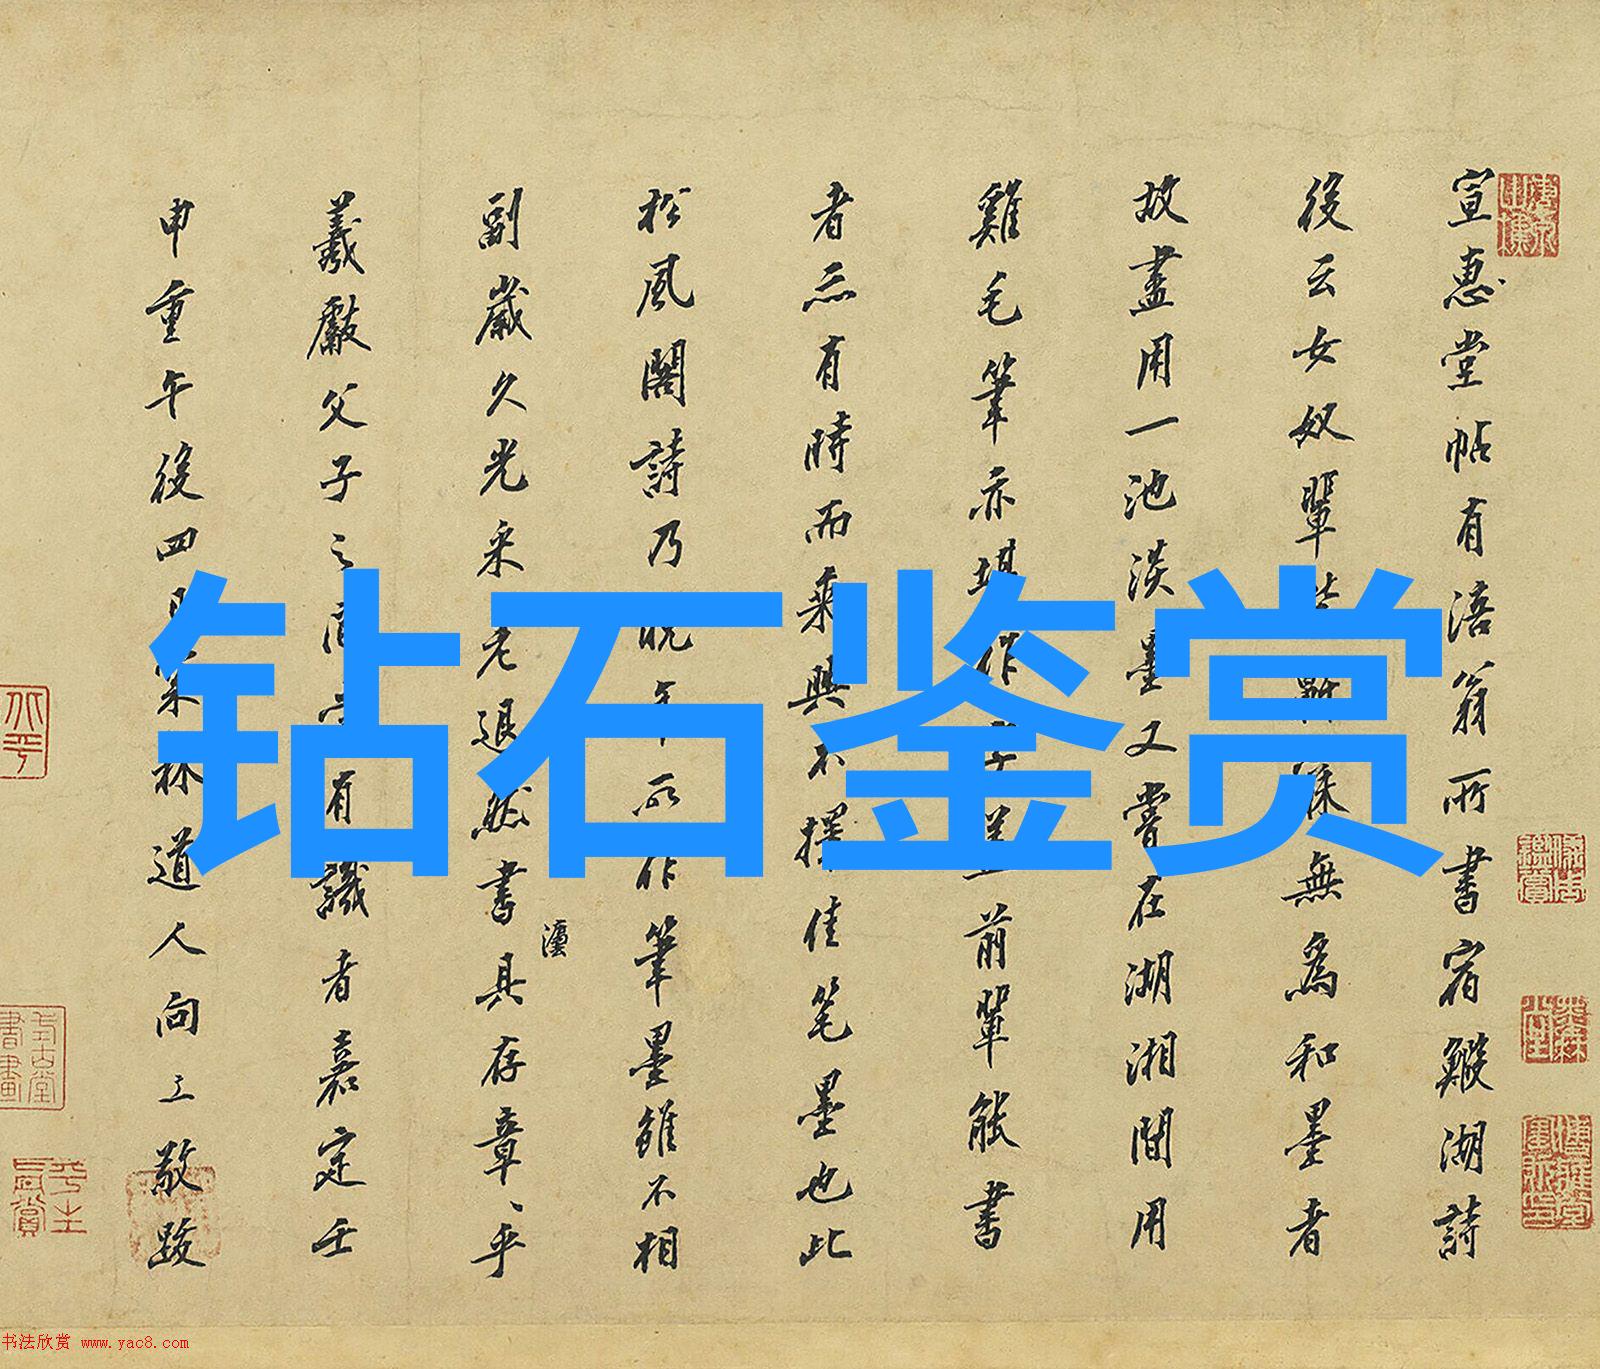 钻石鉴赏
宣惠堂帖有涪翁所書宿鰕湖詩
後云女奴輩
無為和墨者
故盡用一池淡墨又嘗在湖湘間用
雞毛筆亦堪作
前輩能書
者亦有時而乘興不擇佳笔墨也此
松風閣詩乃晚年所作筆墨雖不相
副歲久光采老退然書具存章、乎
瀍
羲獻父子之間
有識者嘉定壬
申重午後四日
林道人向工敬跋
书法欣赏 www.yac8.com